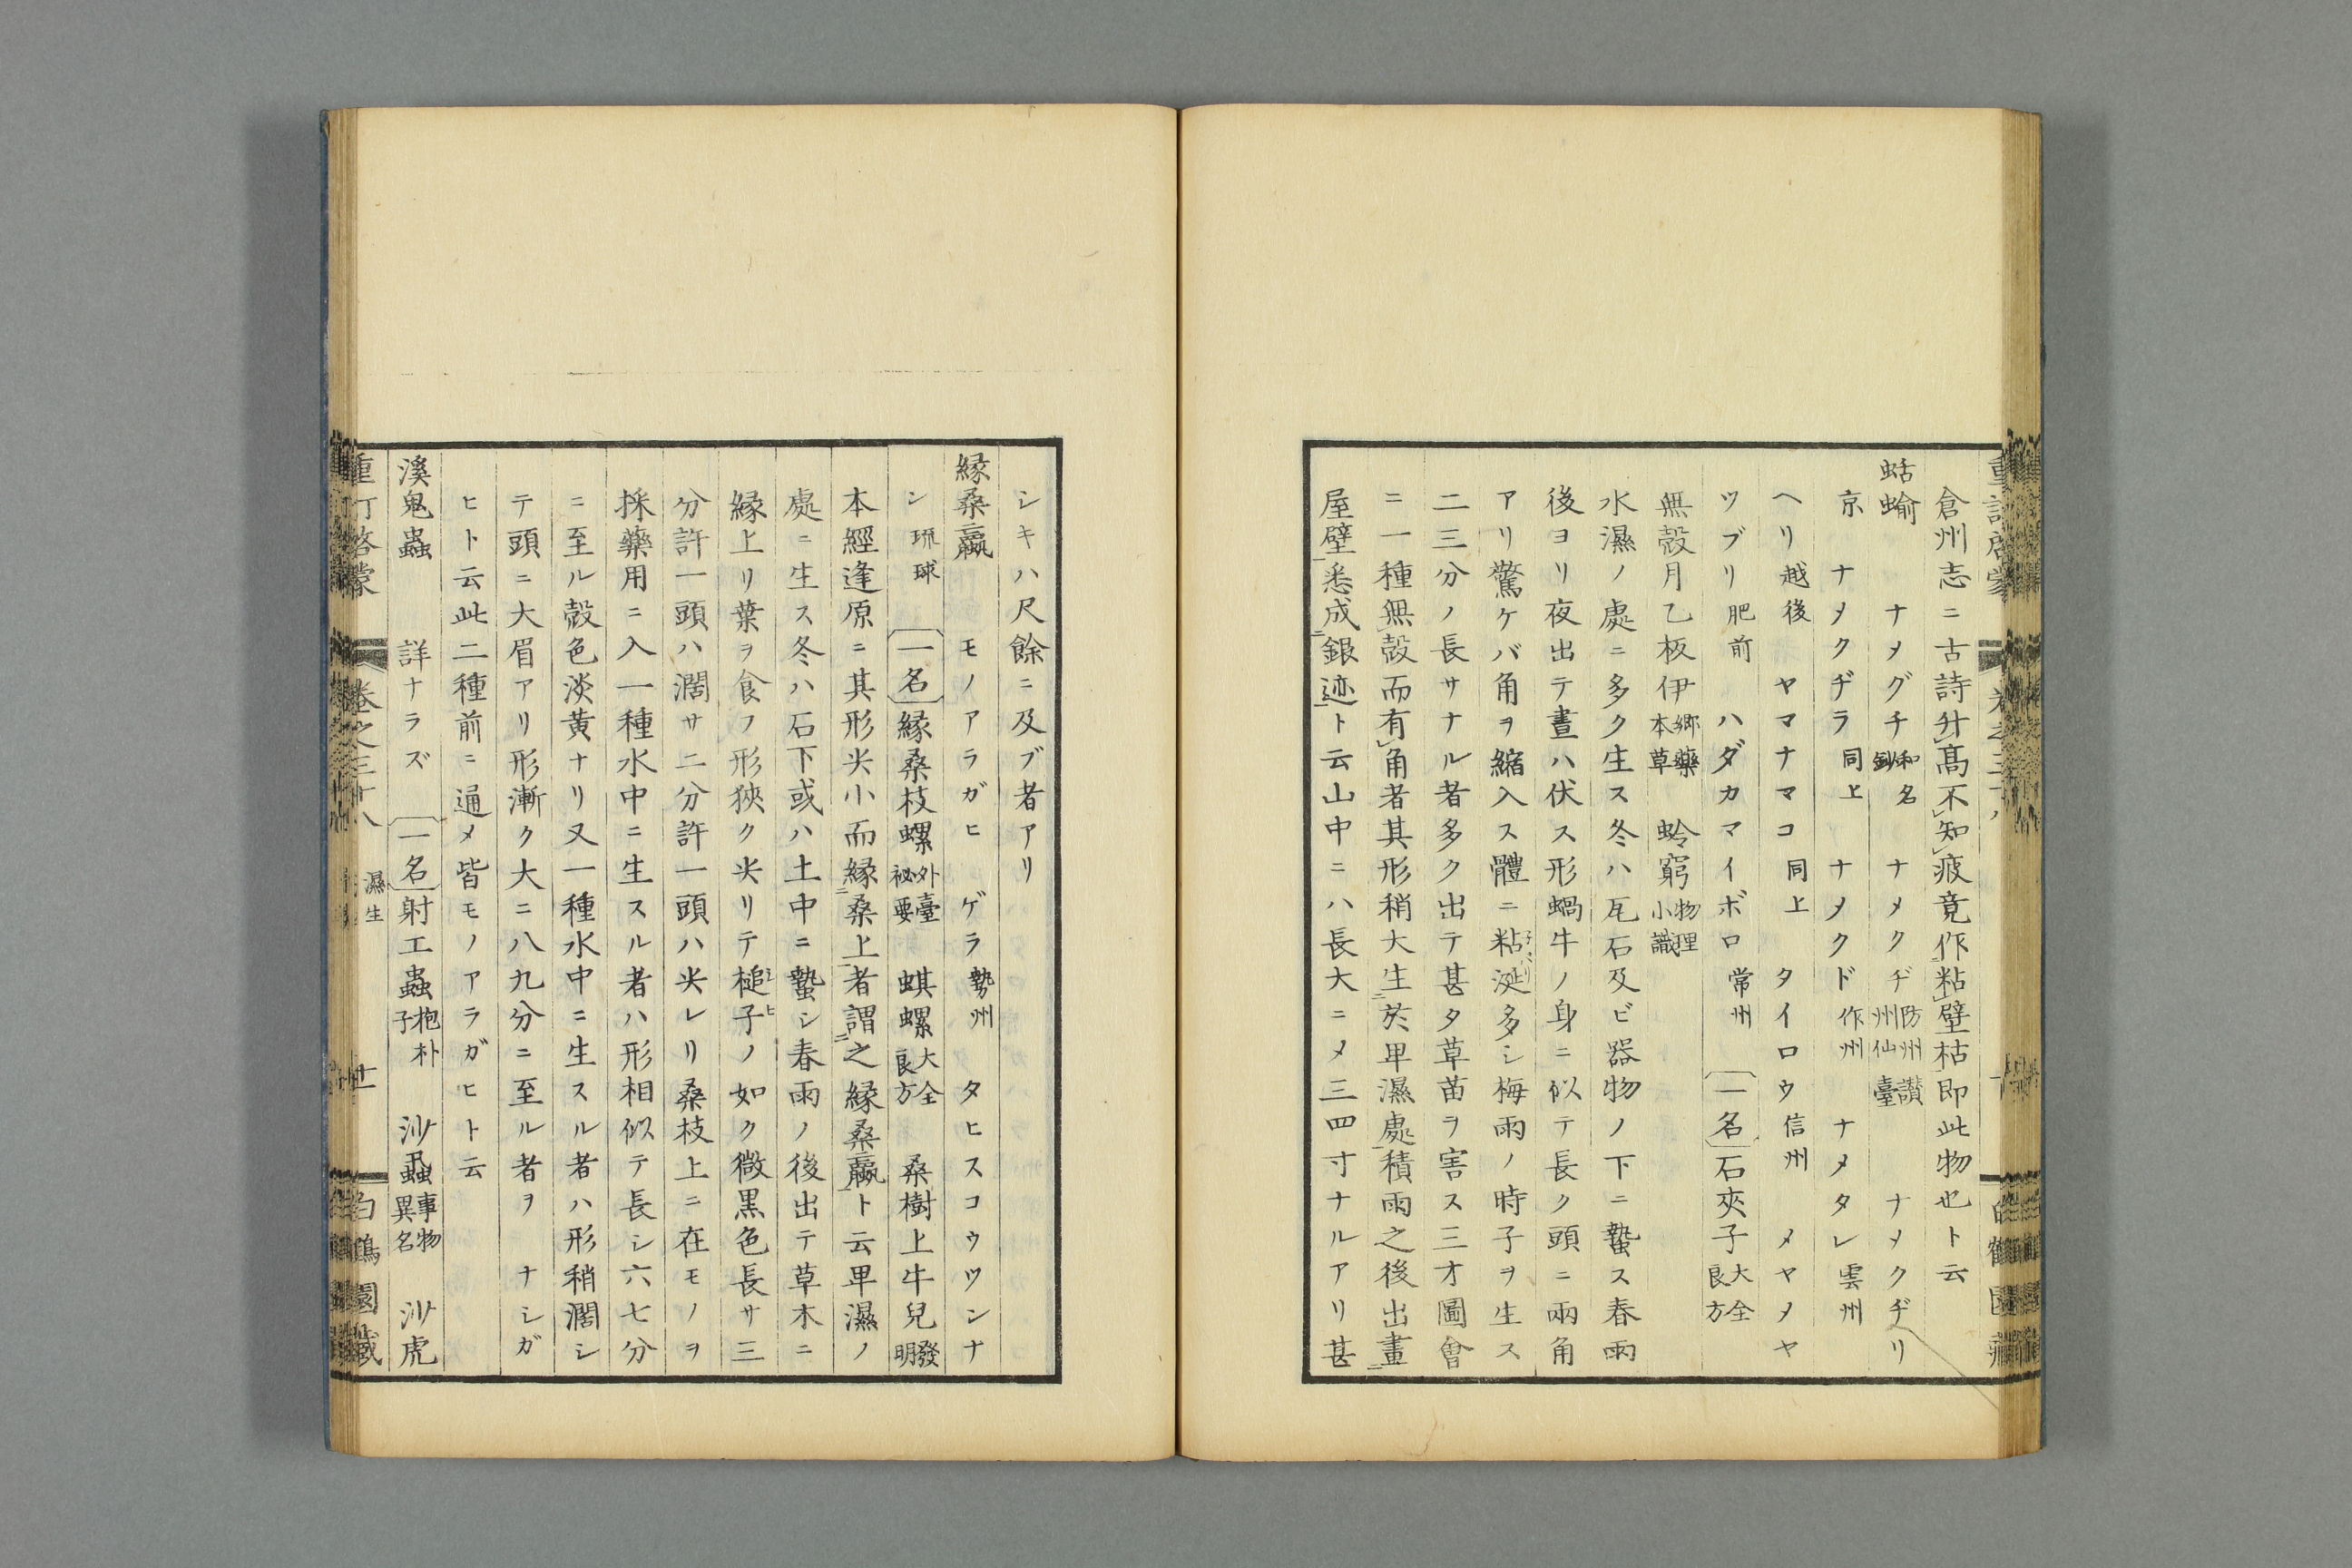 倉州志ニ古詩升髙不知疲竟作粘壁枯即此物也ト云
蛞蝓 ナメグチ和名鈔 ナメクヂ防州讃州仙臺 ナメクヂリ
京 ナメクヂラ同上 ナメクド作州 ナメタレ雲州
ヘリ越後 ヤマナマコ同上 タイロウ信州 メヤメヤ
ツブリ肥前 ハダカマイボロ常州 一名石夾子大全良方
無殻月乙板伊郷藥本草 蛉窮物理小識
水濕ノ處ニ多ク生ス冬ハ瓦石及ビ器物ノ下ニ蟄ス春雨
後ヨリ夜出テ晝ハ伏ス形蝸牛ノ身ニ似テ長ク頭ニ兩角
アリ驚ケバ角ヲ縮入ス體ニ粘涎多シ梅雨ノ時子ヲ生ス
二三分ノ長サナル者多ク出テ甚タ草苗ヲ害ス三才圖會
ニ一種無殻而有角者其形稍大生於卑濕處積雨之後出畫
屋壁悉成銀迹ト云山中ニハ長大ニメ三四寸ナルアリ甚
シキハ尺餘ニ及ブ者アリ
縁桑蠃 モノアラガヒ ゲラ勢州 タヒスコウツンナ
ン琉球 一名縁桑枝螺外臺祕要 蜞螺大全良方 桑樹上牛兒發明
本經逢原ニ其形尖小而縁桑上者謂之縁桑蠃ト云卑濕ノ
處ニ生ス冬ハ石下或ハ土中ニ蟄シ春雨ノ後出テ草木ニ
縁上リ葉ヲ食フ形狹ク尖リテ槌子ノ如ク微黒色長サ三
分許一頭ハ濶サ二分許一頭ハ尖レリ桑枝上ニ在モノヲ
採藥用ニ入一種水中ニ生スル者ハ形相似テ長シ六七分
ニ至ル殻色淡黄ナリ又一種水中ニ生スル者ハ形稍濶シ
テ頭ニ大眉アリ形漸ク大ニ八九分ニ至ル者ヲ ナシガ
ヒト云此二種前ニ通メ皆モノアラガヒト云
溪鬼蟲 詳ナラズ 一名射工蟲抱朴子 沙蝨事物異名 沙虎
重訂啓蒙 卷之三十八 濕生 廿 白鶴園藏